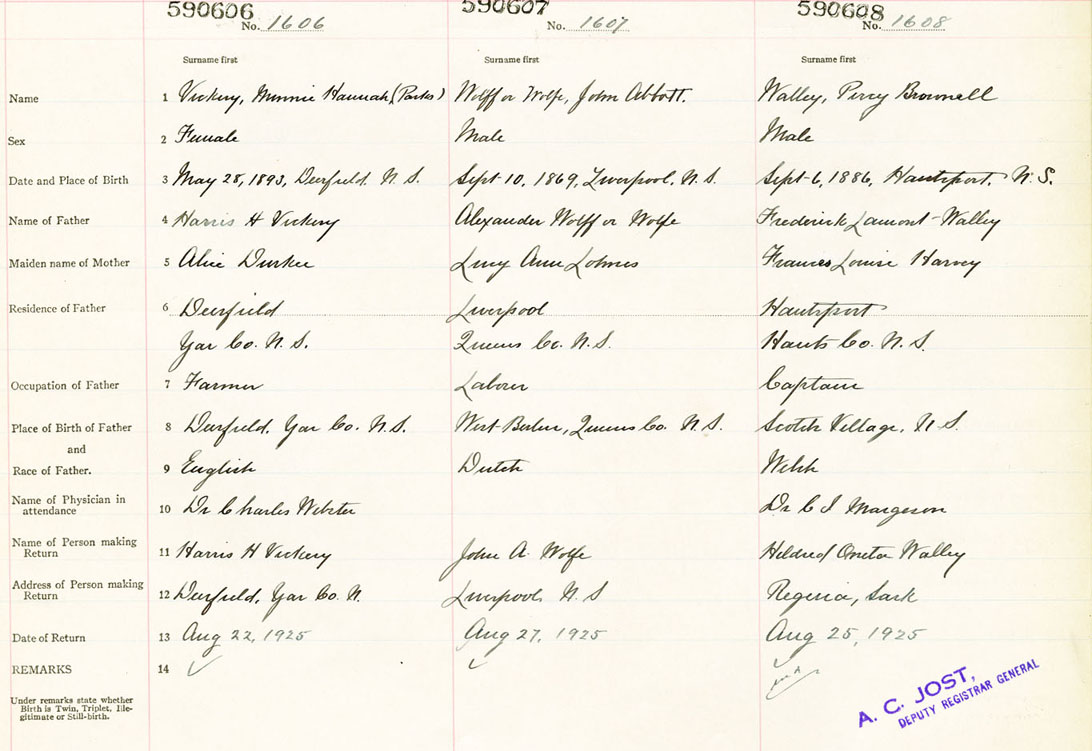 590606 590607 590608
No. 1606 No. 1607 No. 1608
Surname first Surname first Surname first
Name 1 Vickery, Minnie Hannah (Parks) Wolff or Wolfe, John Abbott. Walley, Percy Brownell
Sex 2 Female Male Male
Date and Place of Birth 3 May 28, 1893, Deerfield, N.S. Sept 10, 1869, Liverpool, N.S. Sept 6, 1886, Hantsport, N.S.
Name of Father 4 Harris H Vickery Alexander Wolff or Wolfe Frederick Lamont Walley
Maiden name of Mother 5 Alice Durkee Lucy Ann Lohnes Frances Louise Harvey
Residence of Father 6 Deerfield Liverpool Hantsport
Yar Co. N.S. Queens Co. N.S. Hants Co. N.S.
Occupation of Father 7 Farmer Labour Captain
Place of Birth of Father 8 Deerfield, Yar Co. N.S. West Berlin, Queens Co. N.S. Scotch Village, N.S.
and
Race of Father. 9 English Dutch Welsh
Name of Physician in
attendance 10 Dr Charles Webster Dr C I Margeson
Name of Person making
Return 11 Harris H Vickery John A. Wolfe Hildred Walley
Address of Person making
Return 12 Deerfield, Yar Co. N. Liverpool, N.S Regina, Sask
Date of Return 13 Aug 22, 1925 Aug 27, 1925 Aug 25, 1925
REMARKS 14
Under remarks state whether
Birth is Twin, Triplet, Ille-
gitimate or Still-birth.
A. C. JOST,
DEPUTY REGISTRAR GENERAL